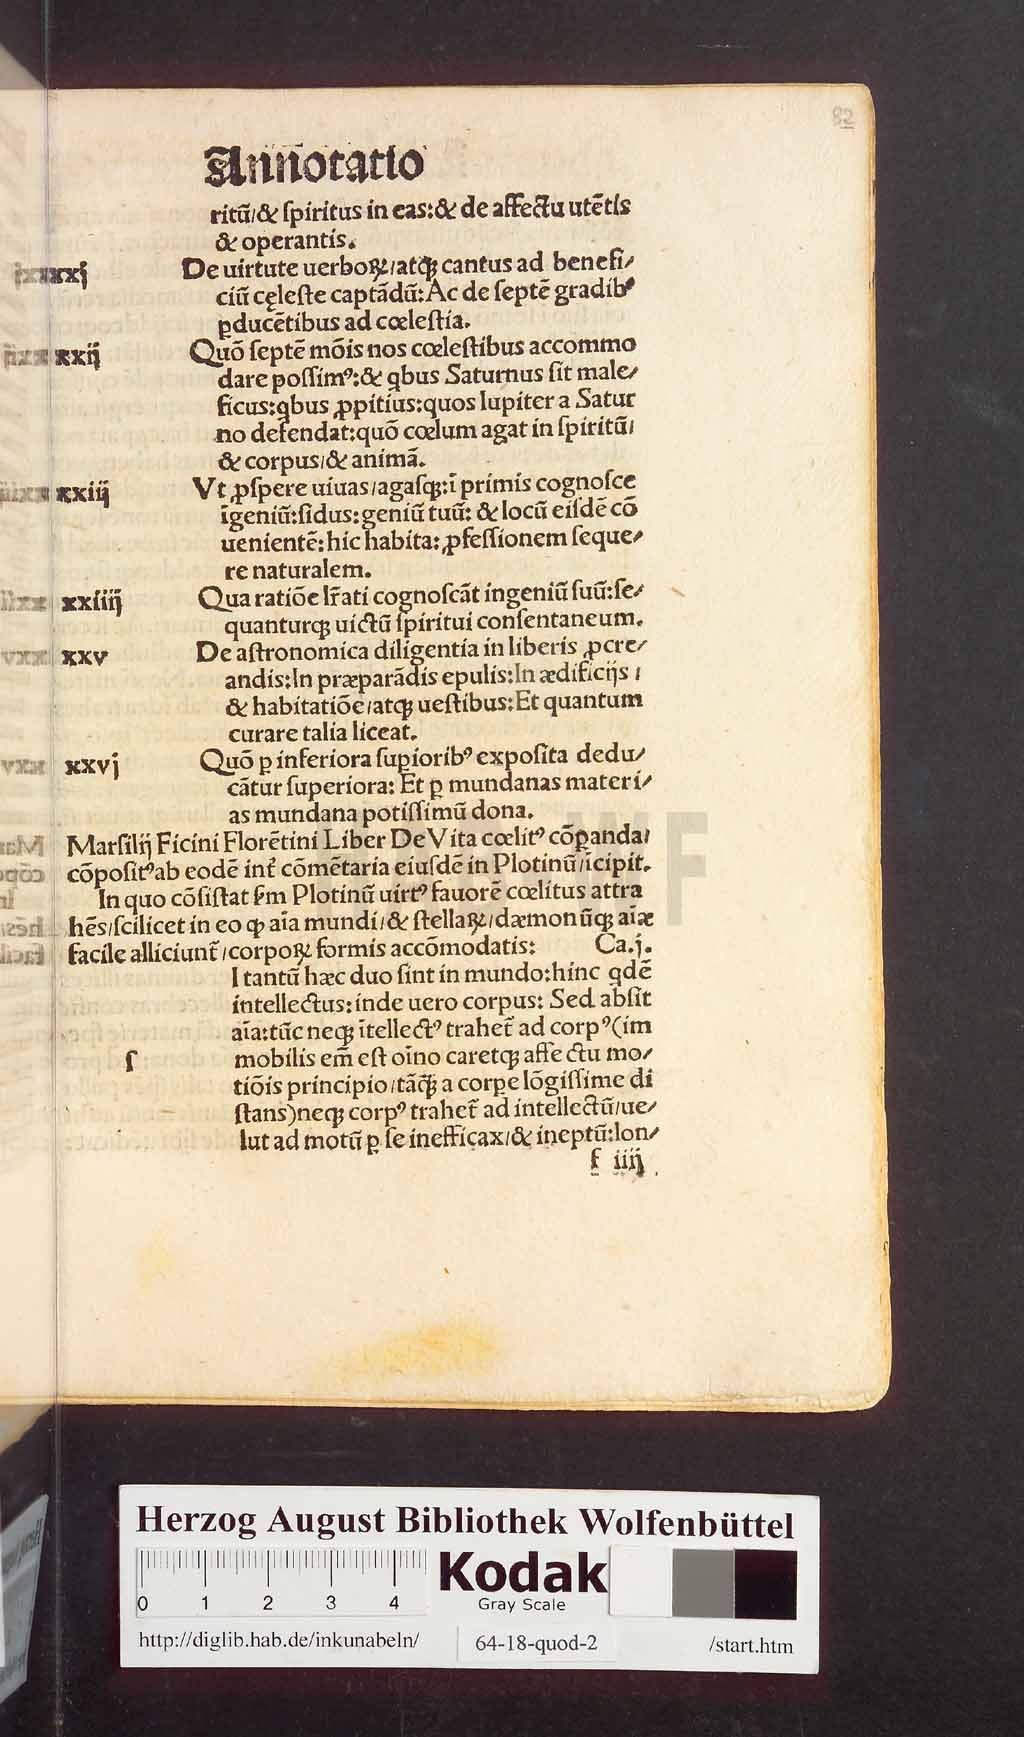 82
Annotatio
ritū/& spiritus in eas:& de affectu utētis
& operantis.
xxj De uirtute uerboꝝ/atqꝫ cantus ad benefi/
ciū cęleste captādū: Ac de septē gradibꝰ
ꝑducētibus ad cœlestia.
xxij Quō septē mōis nos cœlestibus accommo
dare possimꝰ:& qbus Saturnus sit male/
ficus:qbus ꝓpitius:quos Iupiter a Satur
no defendat:quō cœlum agat in spiritū/
& corpus/& animā.
xxiij Vt ꝓspere uiuas/agasqꝫ:ī primis cognosce
īgeniū:sidus:geniū tuū: & locū eisdē cō
uenientē: hic habita: ꝓfessionem seque/
re naturalem.
xxiiij Qua ratiōe lr̄ati cognoscāt ingeniū suū:se/
quanturqꝫ uictū spiritui consentaneum.
xxv De astronomica diligentia in liberis ꝓcre/
andis:In præparādis epulis:In ædificijs /
& habitatiōe/atqꝫ uestibus:Et quantum
curare talia liceat.
xxvj Quō ꝑ inferiora suꝑioribꝰ exposita dedu/
cātur superiora: Et ꝑ mundanas materi/
as mundana potissimū dona.
Marsilij Ficini Florētini Liber De Vita cœlitꝰ cōꝑanda/
cōpositꝰ ab eodē int̄ cōmētaria eiusdē in Plotinū/īcipit.
In quo cōsistat ẜm Plotinū uirtꝰ fauorē cœlitus attra
hēs/scilicet in eo ꝙ aīa mundi/& stellaꝝ/dæmonūqꝫ aīæ
facile alliciunt̄/corpoꝝ formis accōmodatis: Ca.j.
I tantū hæc duo sint in mundo:hinc qdē
intellectus: inde uero corpus: Sed absit
aīa:tūc neqꝫ ītellectꝰ trahet̄ ad corpꝰ(im
s mobilis em̄ est oīno caretqꝫ affectu mo/
tiōis principio/tāqꝫ a corpe lōgissime di
stans)neqꝫ corpꝰ trahet̄ ad intellectū/ue/
lut ad motū ꝑ se inefficax/& ineptū:lon/
f iiij
Herzog August Bibliothek Wolfenbüttel
0 1 2 3 4
Kodak
Gray Scale
http://diglib.hab.de/inkunabeln/ 64-18-quod-2 /start.htm